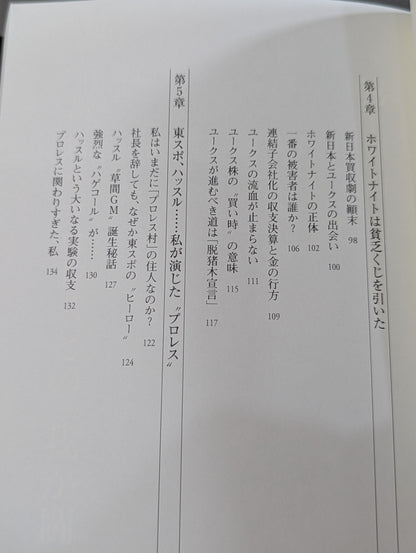 第4章　ホワイトナイトは貧乏くじを引いた
新日本買収劇の顛末　98
新日本とユークスの出会い　100
ホワイトナイトの正体　102
一番の被害者は誰か？　106
連結子会社化の収支決算と金の行方　109
ユークスの流血が止まらない　111
ユークス株の〝買い時〟の意味　115
ユークスが進むべき道は「脱猪木宣言」　117
第5章　東スポ、ハッスル……私が演じた〝プロレス〟
私はいまだに「プロレス村」の住人なのか？　122
社長を辞しても、なぜか東スポの〝ヒーロー〟　124
ハッスル〝草間GM〟誕生秘話　127
強烈な〝バゲコール〟が……　130
ハッスルという大いなる実験の収支　132
プロレスに関わりすぎた、私　134